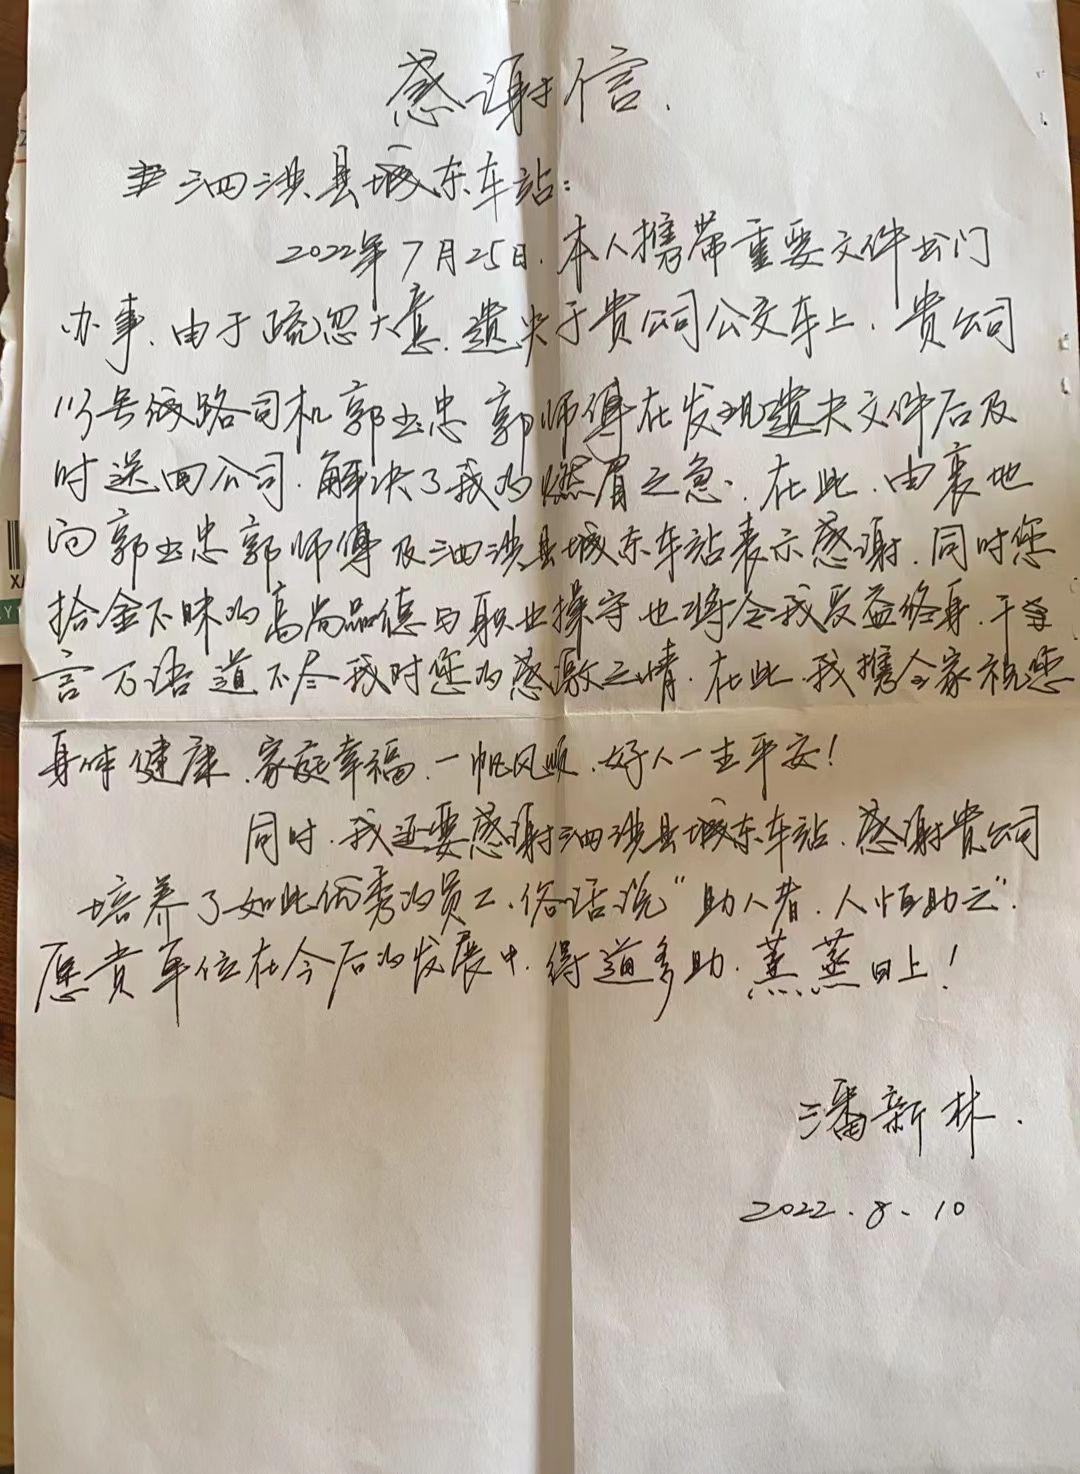 感谢信.
泗洪县城东车站:
2022年7月25日.本人携带重要文件出门
办事.由于疏忽大意.遗失于贵公司公交车上.贵公司
号线路司机郭玉忠郭师傅在发现遗失文件后及
时送回公司.解决了我的燃眉之急.在此.由衷地
向郭玉忠郭师傅及泗洪县城东车站表示感谢.同时您
拾金不昧的高尚品德与职业操守也将令我受益终身.千
言万语道不尽我对您的感激之情.在此.我携全家祝您
身体健康.家庭幸福.一帆风顺.好人一生平安!
同时.我还要感谢泗洪县城东车站.感谢贵公司
培养了如此优秀的员工.俗话说"助人者.人恒助之".
愿贵单位在今后的发展中.得道多助.蒸蒸日上!
潘新林.
2022.8.10